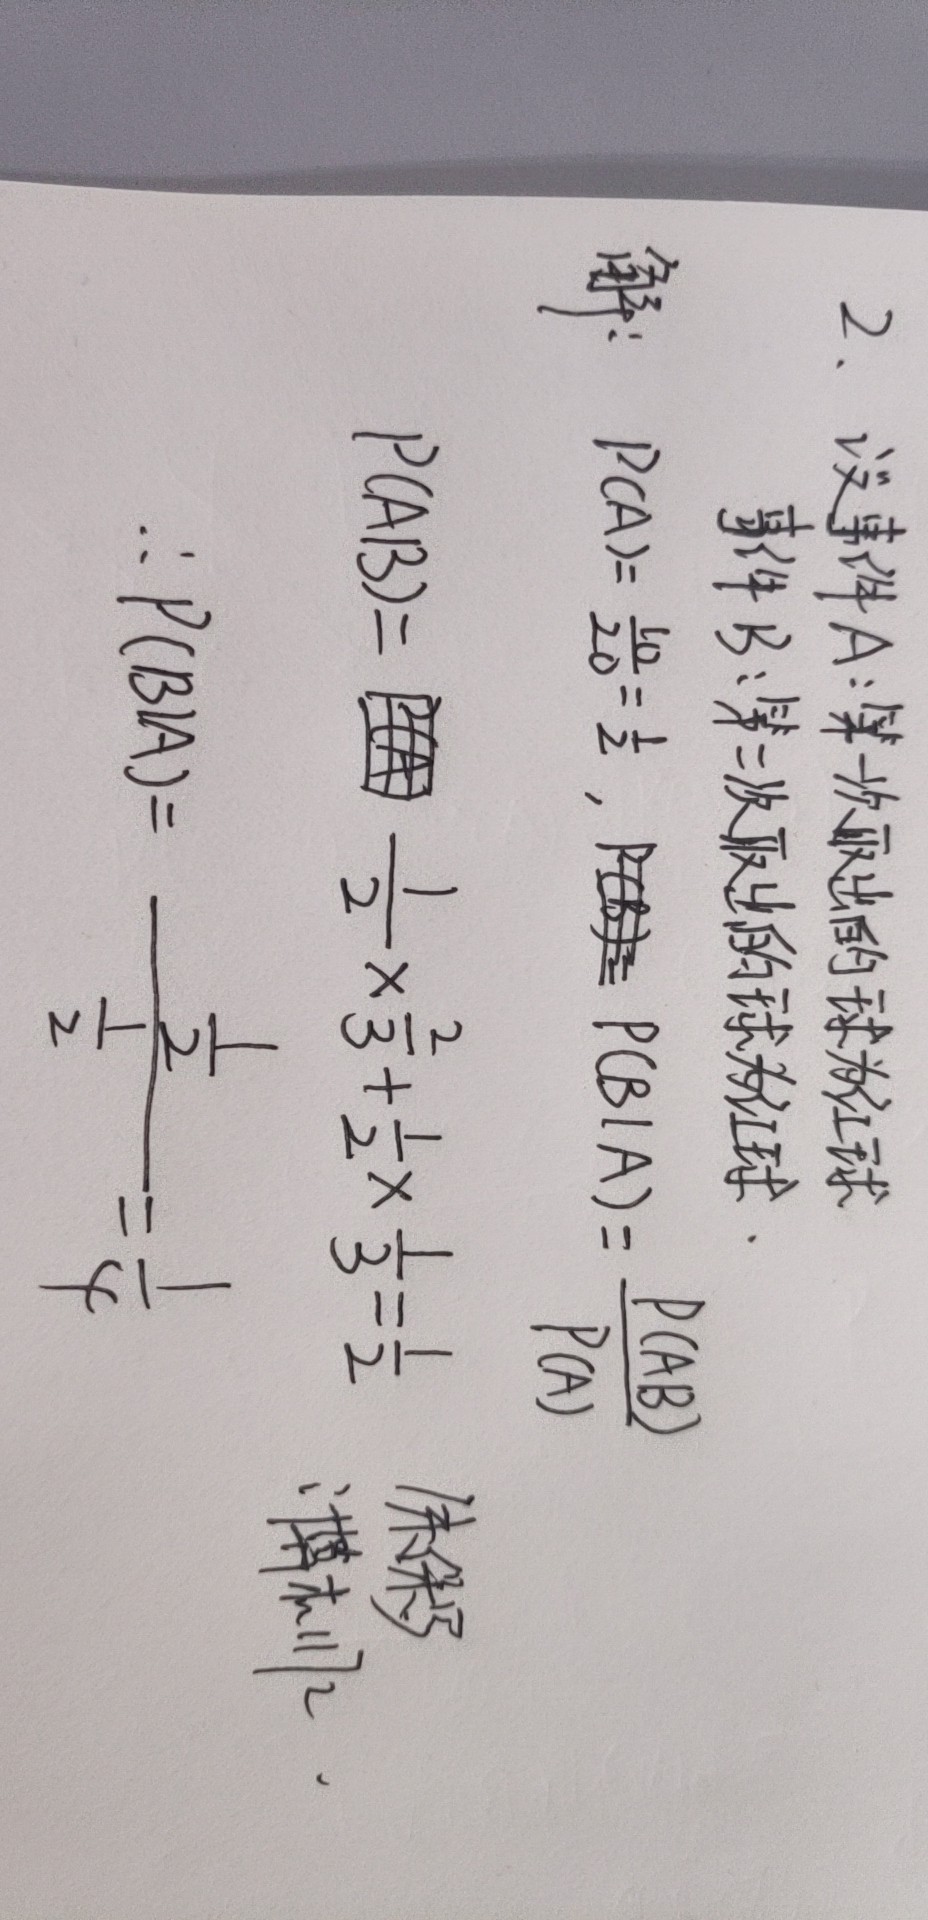 2. 设事件A:第一次取出的球为红球
事件B:第二次取出的球为红球.
解: P(A)=10/20=1/2, P(B|A)=P(AB)/P(A)
P(AB)= 1/2×2/3+1/2×1/3=1/2
∴P(B|A)= (1/2)/(1/2) =1/4